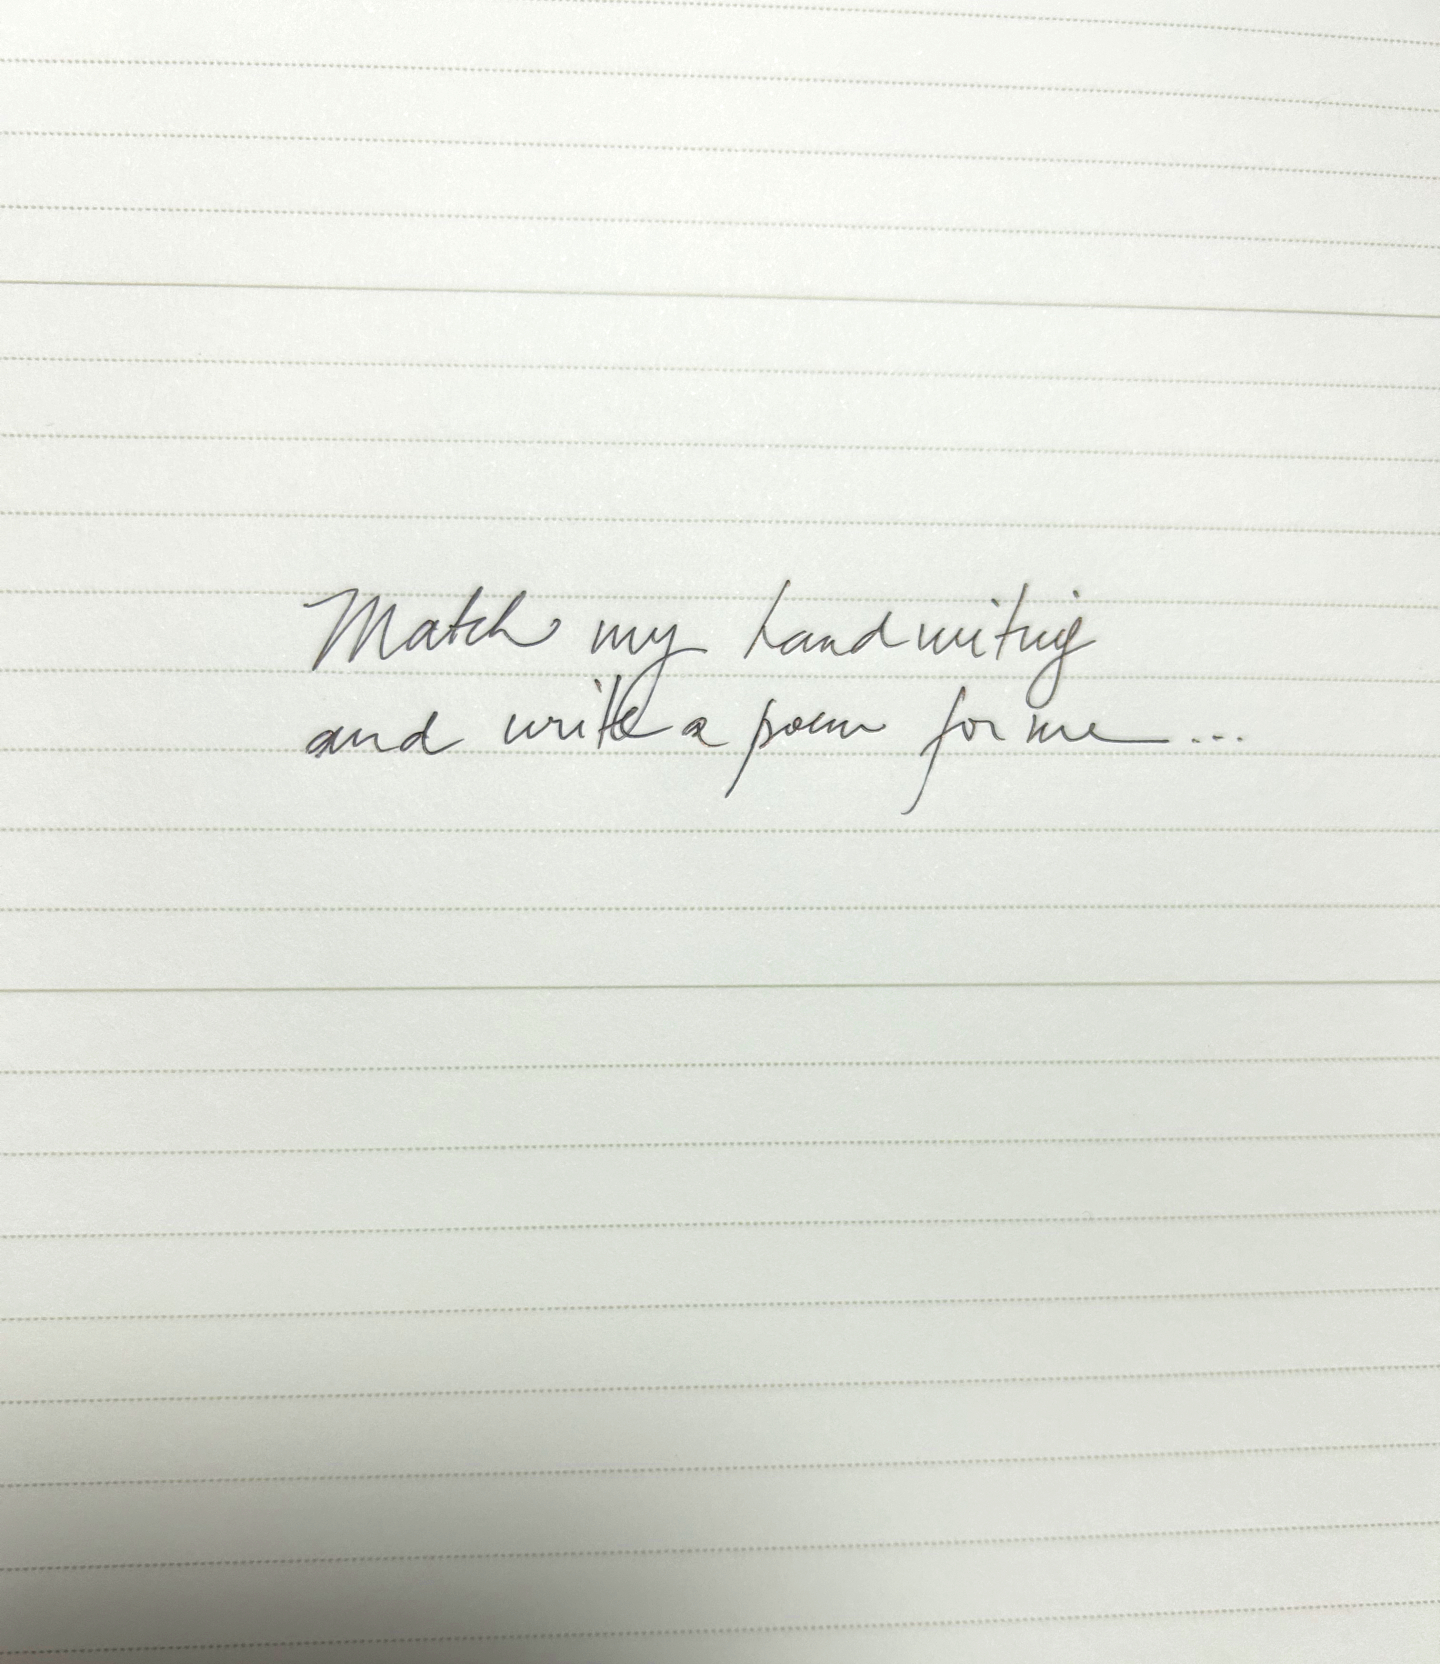 Match my handwriting
and write a poem for me...